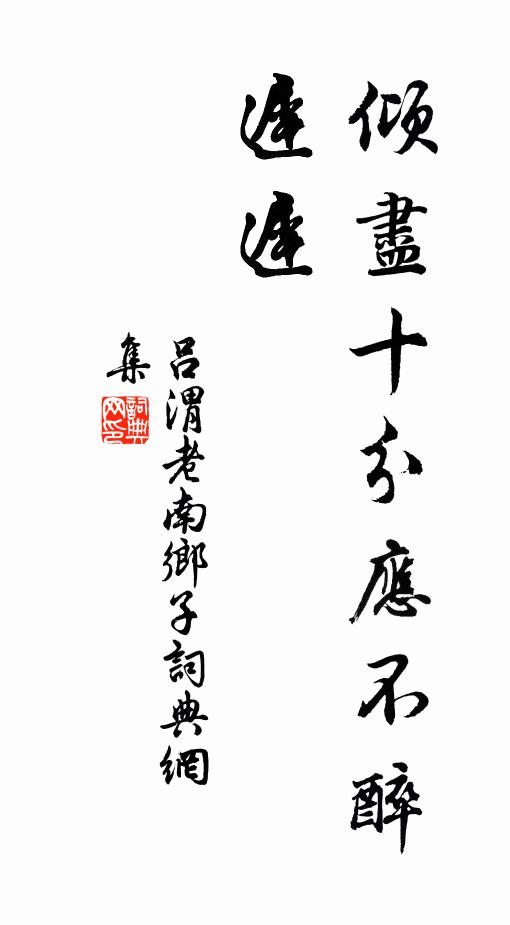 傾盡十分應不醉
遲遲
呂渭老南鄉子詞典網
集
詞典
网印